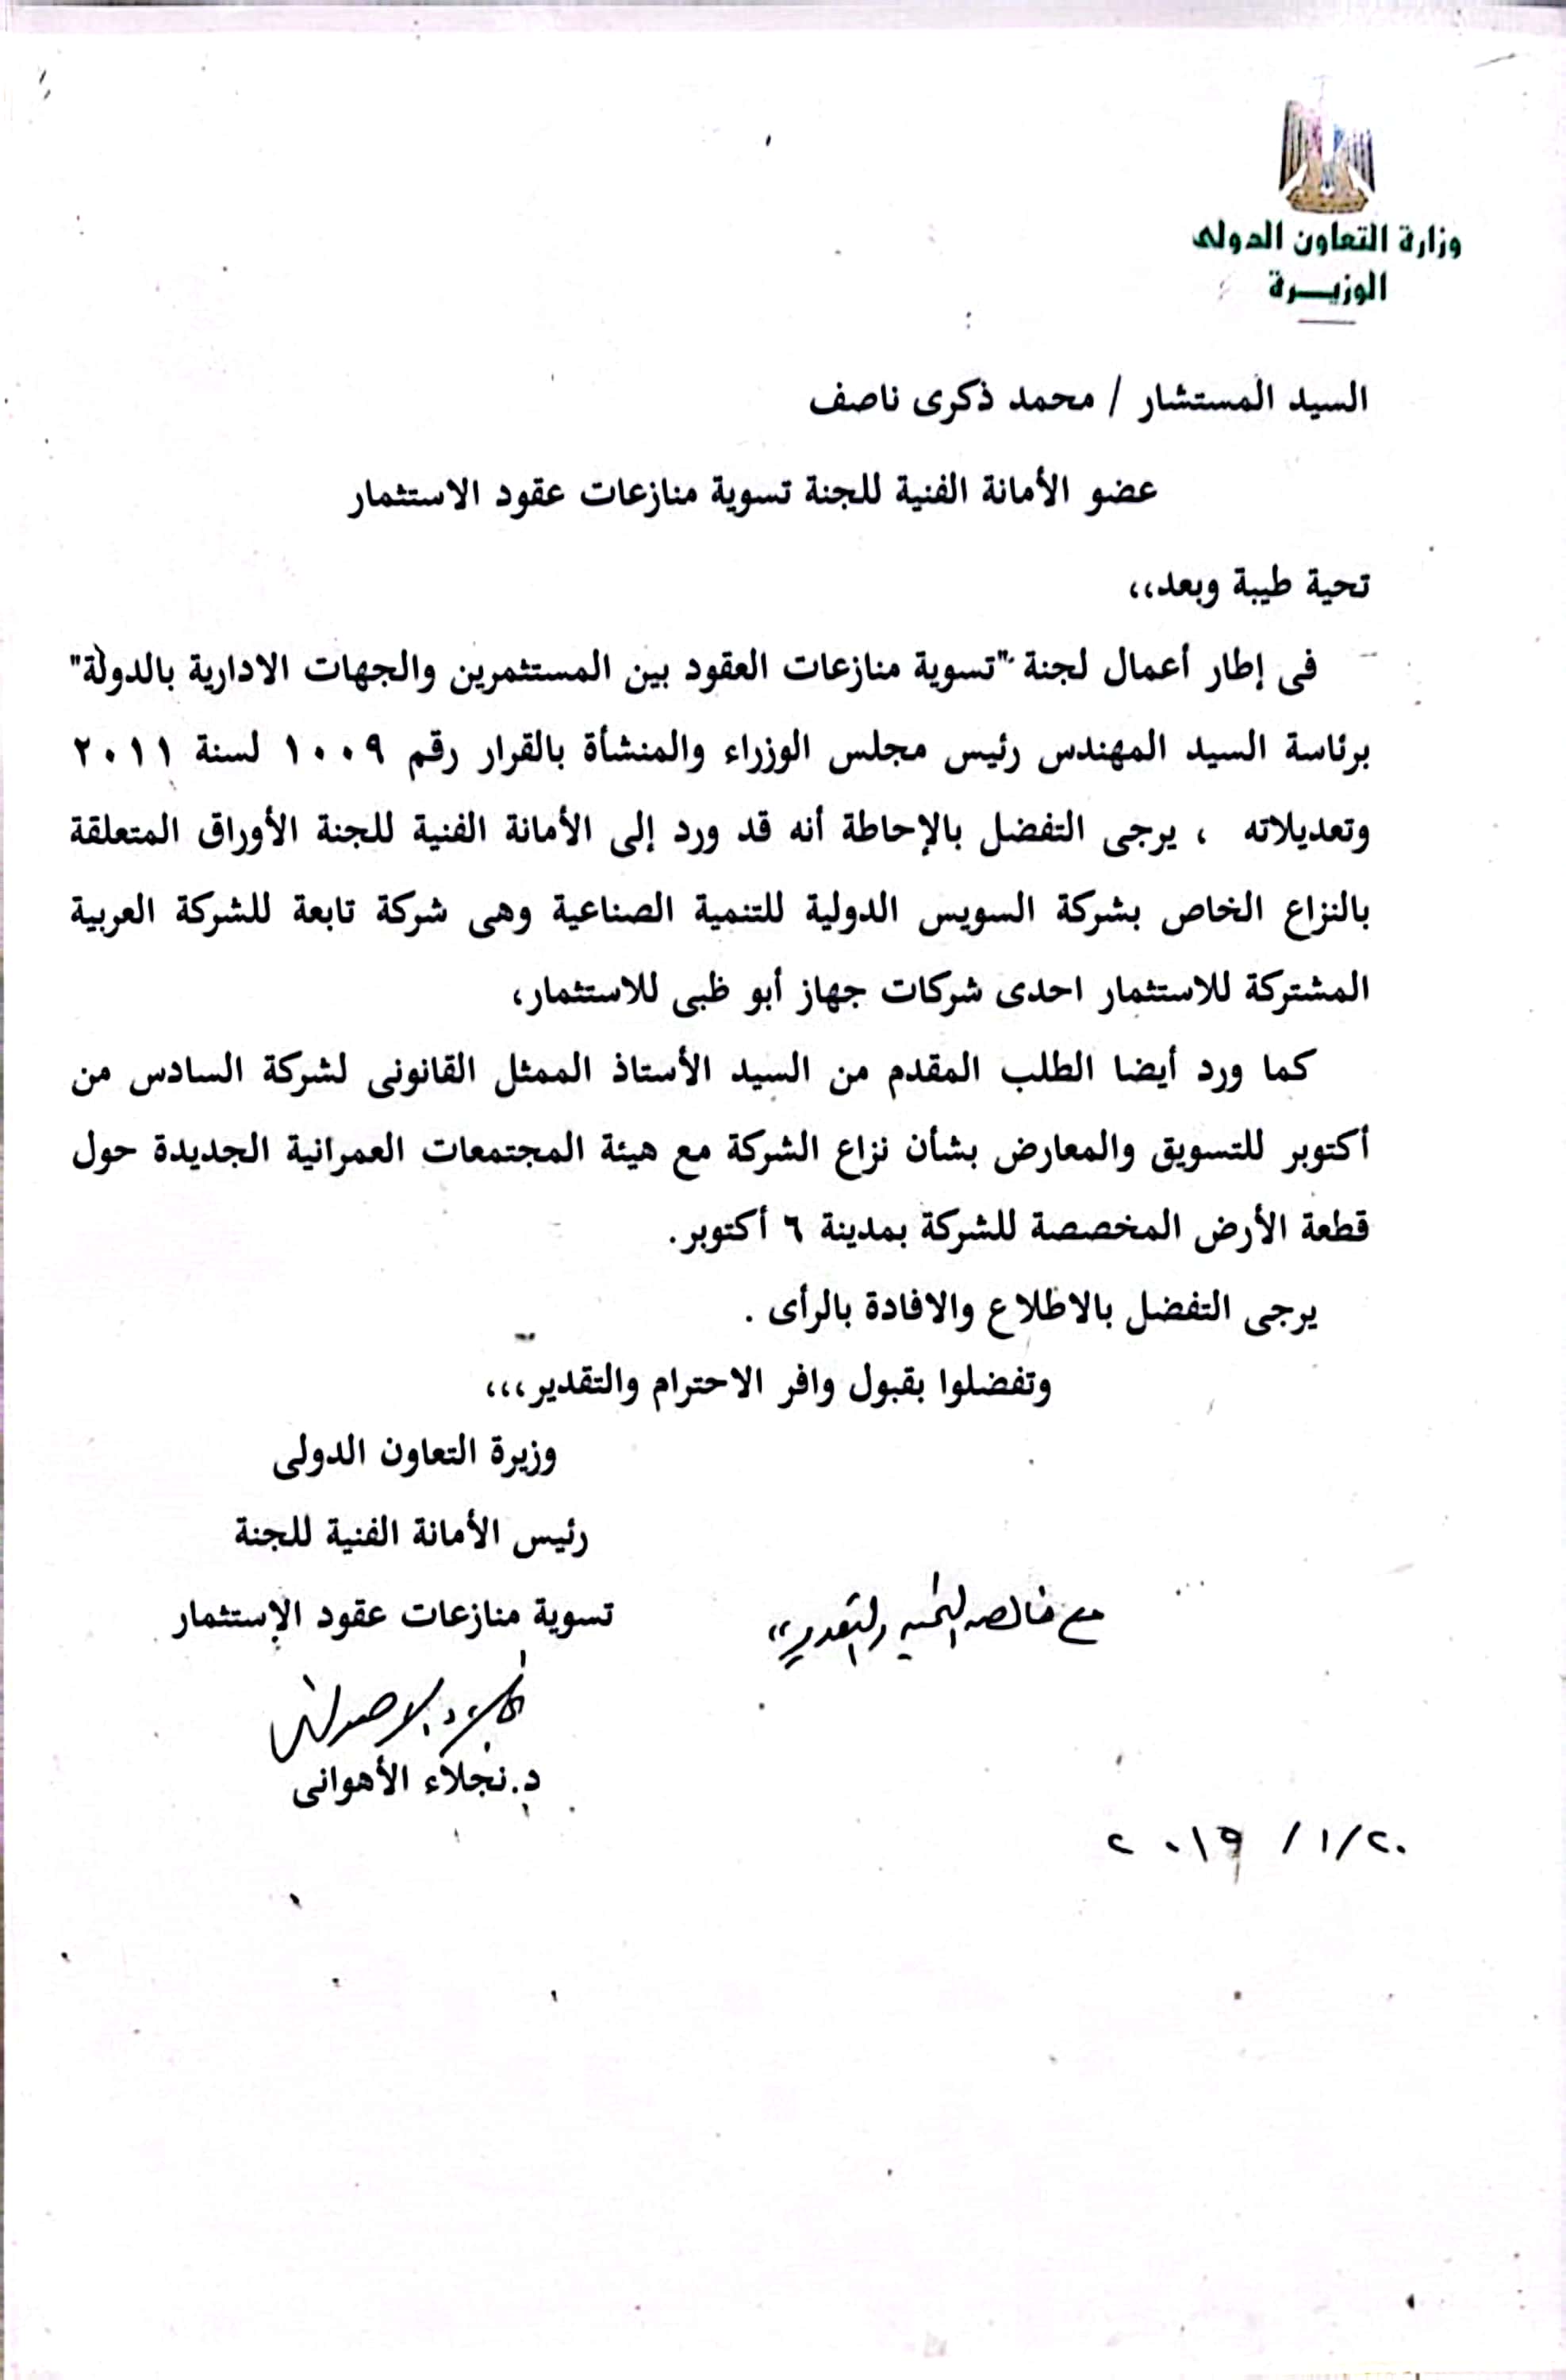 وزارة التعاون الدولى
الوزيـــرة
السيد المستشار / محمد ذكرى ناصف
عضو الأمانة الفنية للجنة تسوية منازعات عقود الاستثمار
تحية طيبة وبعد،،
فى إطار أعمال لجنة "تسوية منازعات العقود بين المستثمرين والجهات الادارية بالدولة"
برئاسة السيد المهندس رئيس مجلس الوزراء والمنشأة بالقرار رقم ١٠٠٩ لسنة ٢٠١١
وتعديلاته ، يرجى التفضل بالإحاطة أنه قد ورد إلى الأمانة الفنية للجنة الأوراق المتعلقة
بالنزاع الخاص بشركة السويس الدولية للتنمية الصناعية وهى شركة تابعة للشركة العربية
المشتركة للاستثمار احدى شركات جهاز أبو ظبى للاستثمار،
كما ورد أيضا الطلب المقدم من السيد الأستاذ الممثل القانونى لشركة السادس من
أكتوبر للتسويق والمعارض بشأن نزاع الشركة مع هيئة المجتمعات العمرانية الجديدة حول
قطعة الأرض المخصصة للشركة بمدينة ٦ أكتوبر.
يرجى التفضل بالاطلاع والافادة بالرأى .
وتفضلوا بقبول وافر الاحترام والتقدير،،،
وزيرة التعاون الدولى
رئيس الأمانة الفنية للجنة
تسوية منازعات عقود الإستثمار
مع خالص التحية والتقدير،،
د.نجلاء الأهوانى
٢٠/١/